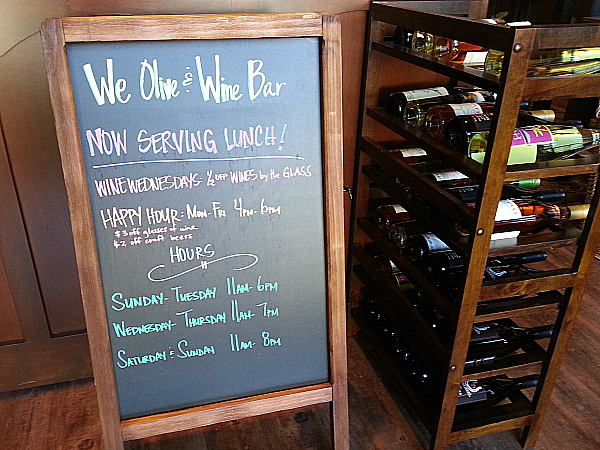 We Olive & Wine Bar
NOW SERVING LUNCH!
WINE WEDNESDAYS- ½ OFF WINES by the GLASS
HAPPY HOUR- MON-FRI 4PM-6PM
$3 off glasses of wine
$2 off craft beers
HOURS
SUNDAY-TUESDAY 11AM-6PM
WEDNESDAY-THURSDAY 11AM-7PM
SATURDAY & SUNDAY 11AM-8PM